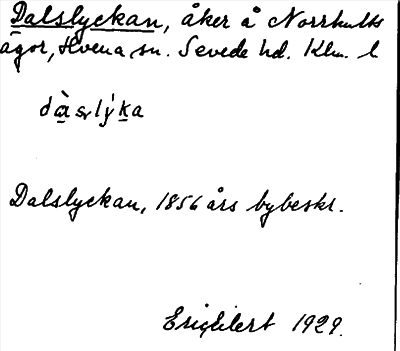 Dalslyckan, åker å Norrhults
ägor, Hvena sn. Sevede hd. Klm. l
Dalslyckan, 1856 års bybeskr.
1929.